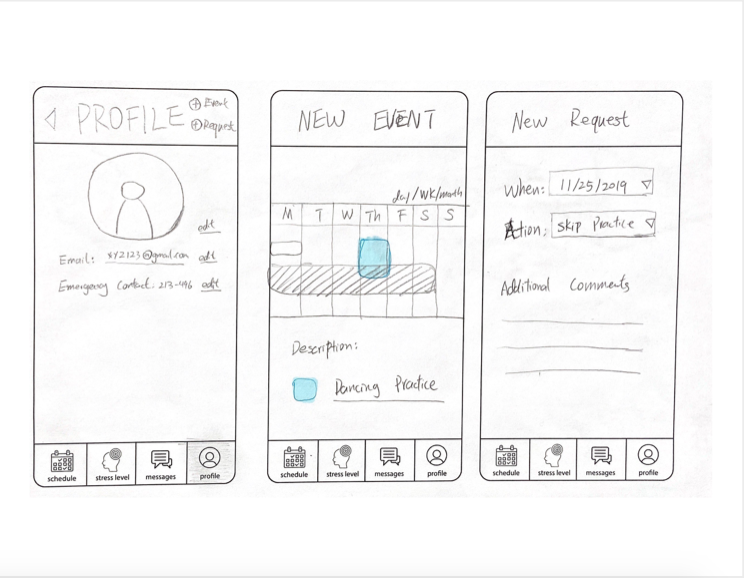 PROFILE
+ Event
+ Request
edit
Email: xyz123@gmail.com edit
Emergency Contact: 213-496 edit
schedule
stress level
messages
profile
NEW EVENT
day/wk/month
M T W Th F S S
Description:
Dancing Practice
schedule
stress level
messages
profile
New Request
When: 11/25/2019
Action: Skip Practice
Additional Comments
schedule
stress level
messages
profile